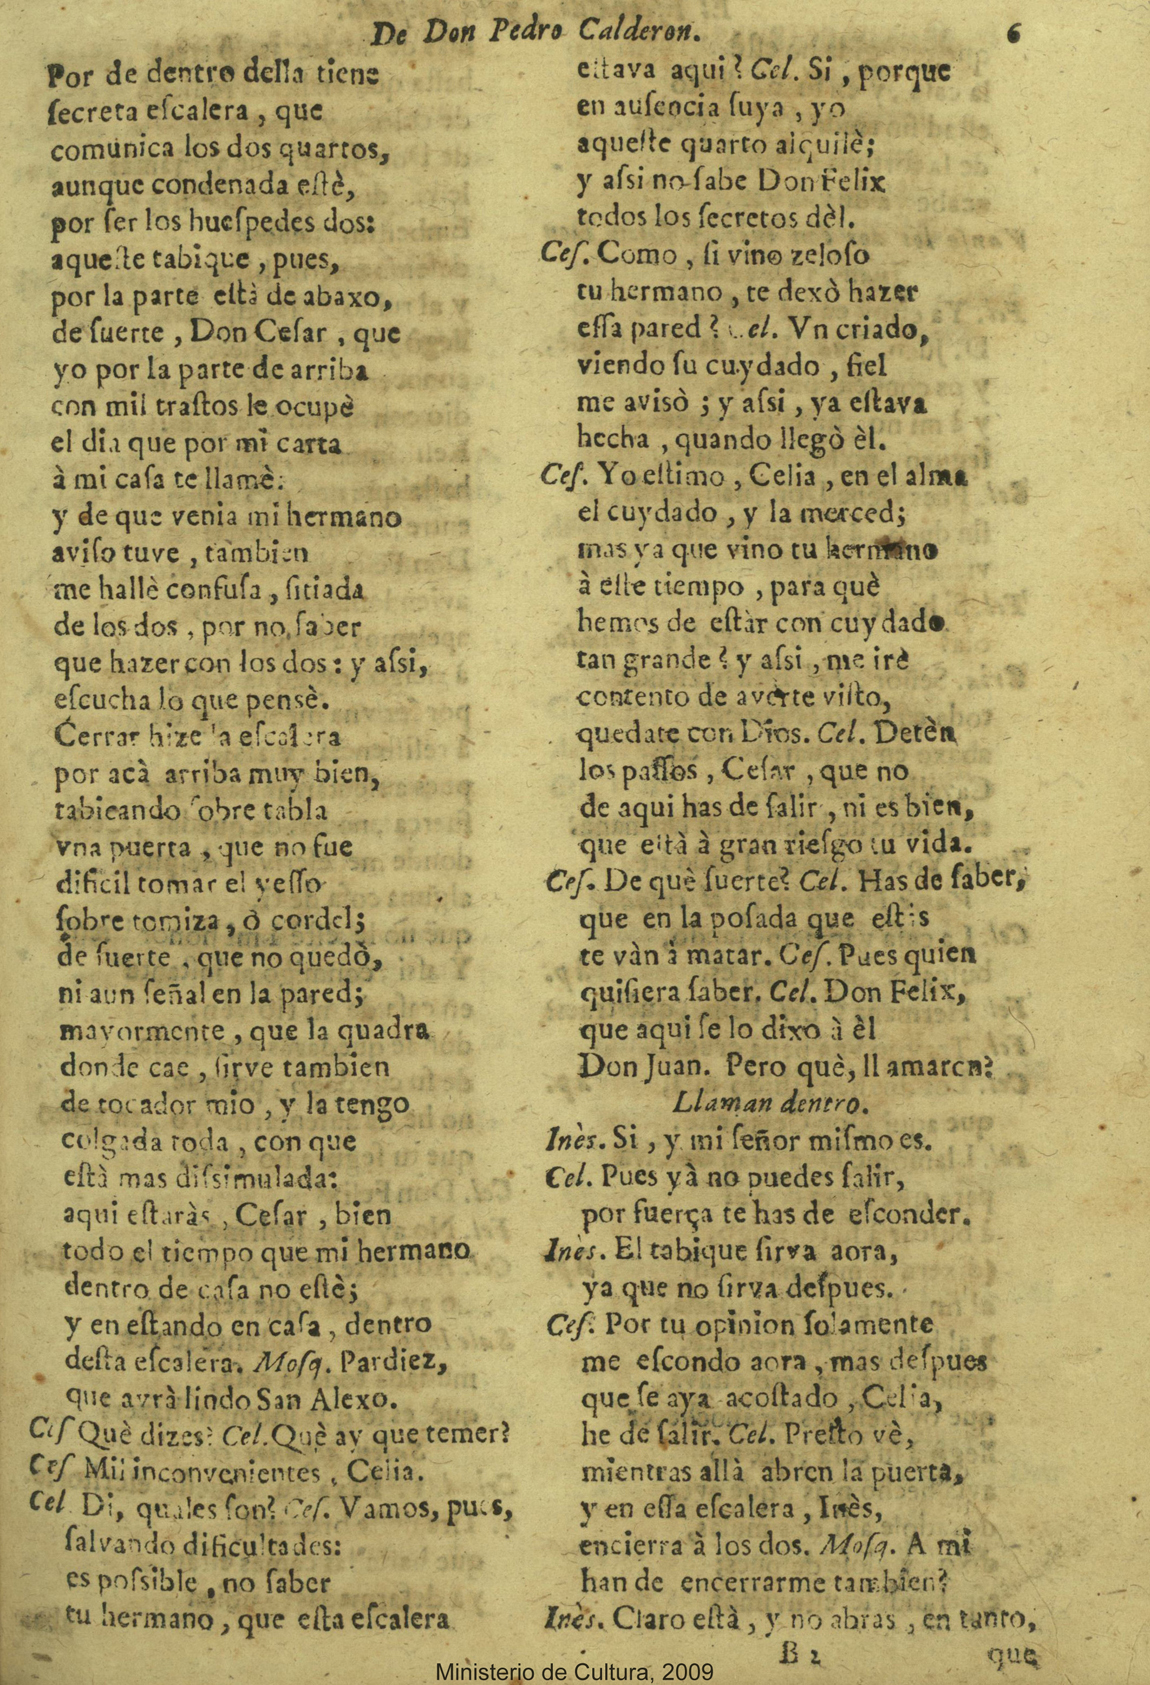 De Don Pedro Calderon. 6
Por de dentro della tiene
ſecreta eſcalera , que
comunica los dos quartos,
aunque condenada eſtè,
por ſer los hueſpedes dos:
aqueſte tabique , pues,
por la parte eſtà de abaxo,
de ſuerte , Don Ceſar , que
yo por la parte de arriba
con mil traſtos le ocupè
el dia que por mi carta
à mi caſa te llamè:
y de que venia mi hermano
aviſo tuve , tambien
me hallè confuſa , ſitiada
de los dos , por no ſaber
que hazer con los dos : y aſsi,
eſcucha lo que pensè.
Cerrar hize la eſcalera
por acà arriba muy bien,
tabicando ſobre tabla
vna puerta , que no fue
dificil tomar el yeſſo
ſobre tomiza , ò cordel;
de ſuerte , que no quedò,
ni aun ſeñal en la pared;
mayormente , que la quadra
donde cae , ſirve tambien
de tocador mio , y la tengo
colgada toda , con que
eſtà mas diſsimulada:
aqui eſtaràs , Ceſar , bien
todo el tiempo que mi hermano
dentro de caſa no eſtè;
y en eſtando en caſa , dentro
deſta eſcalera. Moſq. Pardiez,
que avrà lindo San Alexo.
Ceſ Què dizes? Cel. Què ay que temer?
Ceſ Mil inconvenientes , Celia.
Cel Di, quales ſon? Ceſ. Vamos, pues,
ſalvando dificultades:
es poſsible , no ſaber
tu hermano , que eſta eſcalera
eſtava aqui? Cel. Si , porque
en auſencia ſuya , yo
aqueſte quarto alquilè;
y aſsi no ſabe Don Felix
todos los ſecretos dèl.
Ceſ. Como , ſi vino zeloſo
tu hermano , te dexò hazer
eſſa pared? Cel. Vn criado,
viendo ſu cuydado , fiel
me avisò ; y aſsi , ya eſtava
hecha , quando llegò èl.
Ceſ. Yo eſtimo , Celia , en el alma
el cuydado , y la merced;
mas ya que vino tu hermano
à eſte tiempo , para què
hemos de eſtàr con cuydado
tan grande? y aſsi , me irè
contento de averte viſto,
quedate con Dios. Cel. Detèn
los paſſos , Ceſar , que no
de aqui has de ſalir , ni es bien,
que eſtà à gran rieſgo tu vida.
Ceſ. De què ſuerte? Cel. Has de ſaber,
que en la poſada que eſtàs
te vàn à matar. Ceſ. Pues quien
quiſiera ſaber. Cel. Don Felix,
que aqui ſe lo dixo à èl
Don Juan. Pero què, llamaren?
Llaman dentro.
Inès. Si , y mi ſeñor miſmo es.
Cel. Pues yà no puedes ſalir,
por fuerça te has de eſconder.
Inès. El tabique ſirva aora,
ya que no ſirva deſpues.
Ceſ. Por tu opinion ſolamente
me eſcondo aora , mas deſpues
que ſe aya acoſtado , Celia,
he de ſalir. Cel. Preſto vè,
mientras allà abren la puerta,
y en eſſa eſcalera , Inès,
encierra à los dos. Moſq. A mi
han de encerrarme tambien?
Inès. Claro eſtà , y no abras , en tanto,
B 2 que
Ministerio de Cultura, 2009